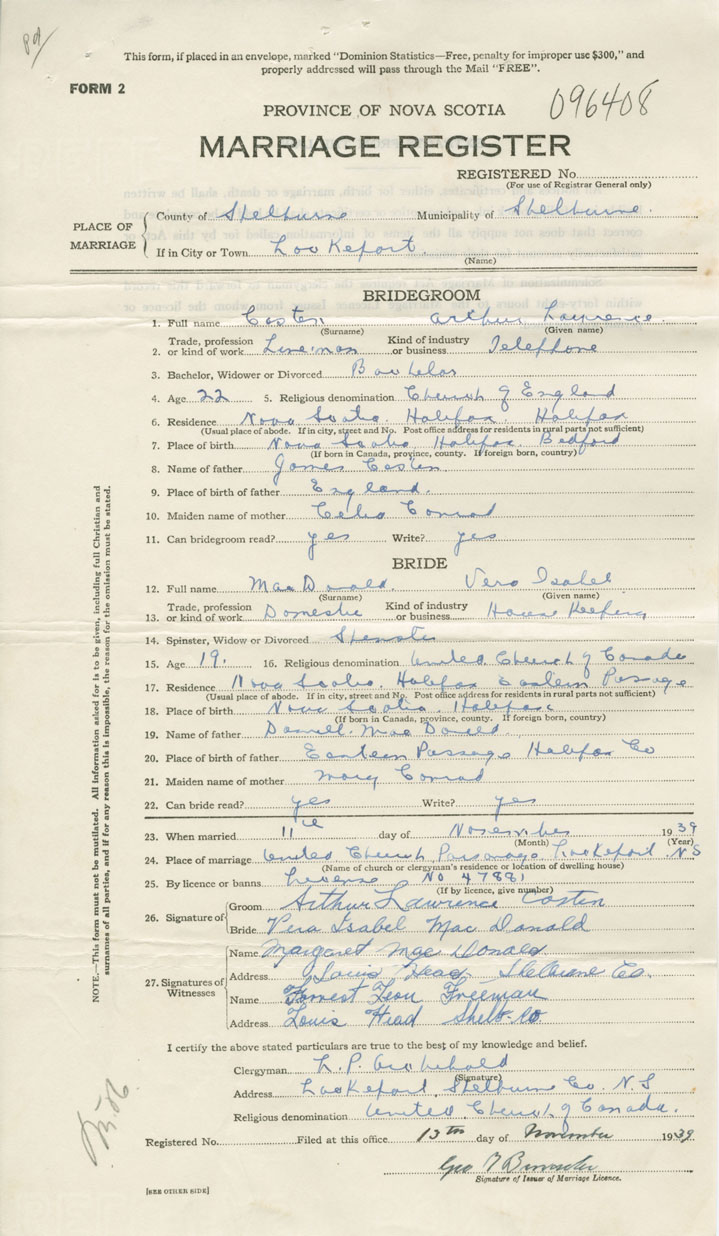 This form, if placed in an envelope, marked "Dominion Statistics—Free, penalty for improper use $300," and
properly addressed will pass through the Mail "FREE".
FORM 2
PROVINCE OF NOVA SCOTIA
096408
MARRIAGE REGISTER
REGISTERED No.
(For use of Registrar General only)
PLACE OF MARRIAGE
County of Shelburne Municipality of Shelburne.
If in City or Town Lockeport.
(Name)
BRIDEGROOM
1. Full name Costen Arthur Lawrence.
(Surname) (Given name)
2. Trade, profession or kind of work Lineman Kind of industry or business Telephone
3. Bachelor, Widower or Divorced Bachelor
4. Age 22 5. Religious denomination Church of England
6. Residence Nova Scotia. Halifax. Halifax
(Usual place of abode. If in city, street and No. Post office address for residents in rural parts not sufficient)
7. Place of birth Nova Scotia Halifax. Bedford
(If born in Canada, province, county. If foreign born, country)
8. Name of father James Costen
9. Place of birth of father England.
10. Maiden name of mother Celia Conrad
11. Can bridegroom read? yes Write? yes
BRIDE
12. Full name MacDonald. Vera Isabel
(Surname) (Given name)
13. Trade, profession or kind of work Domestic Kind of industry or business House Keeping
14. Spinster, Widow or Divorced Spinster
15. Age 19. 16. Religious denomination United Church of Canada
17. Residence Nova Scotia. Halifax Eastern Passage
(Usual place of abode. If in city, street and No. Post office address for residents in rural parts not sufficient)
18. Place of birth Nova Scotia. Halifax
(If born in Canada, province, county. If foreign born, country)
19. Name of father MacDonald
20. Place of birth of father Eastern Passage Halifax Co
21. Maiden name of mother Mary Conrad
22. Can bride read? yes Write? yes
23. When married 11th day of November 1939
(Month) (Year)
24. Place of marriage United Church Parsonage Lockeport. N.S
(Name of church or clergyman's residence or location of dwelling house)
25. By licence or banns license No 47881
(If by licence, give number)
26. Signature of
Groom Arthur Lawrence Costen
Bride Vera Isabel MacDonald
27. Signatures of Witnesses
Name Margaret MacDonald
Address Louis Head Shelburne Co.
Name Forrest Leon Freeman
Address Louis Head Shelb. Co
I certify the above stated particulars are true to the best of my knowledge and belief.
Clergyman L. P. Archibald
(Signature)
Address Lockeport, Shelburne Co. N.S
Religious denomination United Church of Canada.
Registered No. Filed at this office 13th day of November 1939
Geo
Signature of Issuer of Marriage Licence.
[SEE OTHER SIDE]
NOTE.—This form must not be mutilated. All information asked for is to be given, including full Christian and
surnames of all parties, and if for any reason this is impossible, the reason for the omission must be stated.